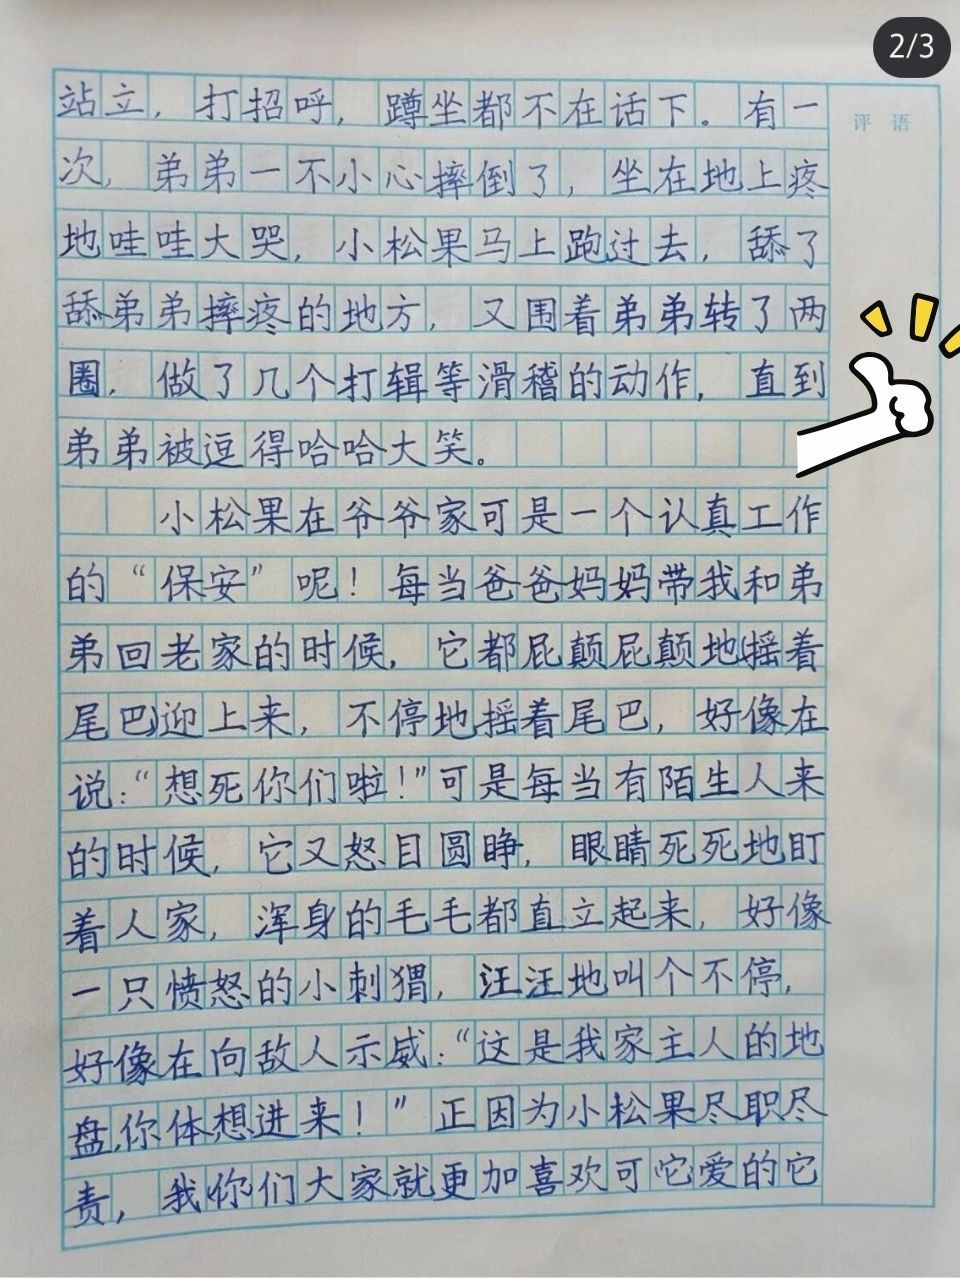 2/3
评 语
站立，打招呼，蹲坐都不在话下。有一
次，弟弟一不小心摔倒了，坐在地上疼
地哇哇大哭，小松果马上跑过去，舔了
舔弟弟摔疼的地方，又围着弟弟转了两
圈，做了几个打辑等滑稽的动作，直到
弟弟被逗得哈哈大笑。
小松果在爷爷家可是一个认真工作
的“保安”呢！每当爸爸妈妈带我和弟
弟回老家的时候，它都屁颠屁颠地摇着
尾巴迎上来，不停地摇着尾巴，好像在
说：“想死你们啦！”可是每当有陌生人来
的时候，它又怒目圆睁，眼睛死死地盯
着人家，浑身的毛毛都直立起来，好像
一只愤怒的小刺猬，汪汪地叫个不停，
好像在向敌人示威：“这是我家主人的地
盘，你体想进来！”正因为小松果尽职尽
责，我你们大家就更加喜欢可它爱的它